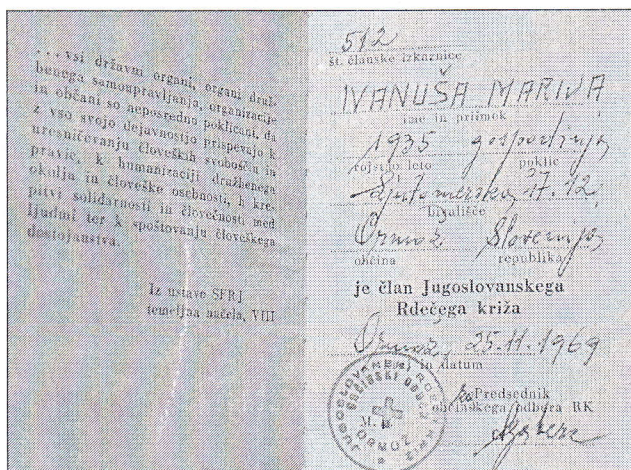 ...vsi državni organi, organi druž-
benega samoupravljanja, organizacije
in občani so neposredno poklicani, da
z vso svojo dejavnostjo prispevajo k
uresničevanju človeških svoboščin in
pravic, k humanizaciji družbenega
okolja in človeške osebnosti, h kre-
pitvi solidarnosti in človečnosti med
ljudmi ter k spoštovanju človeškega
dostojanstva.
Iz ustave SFRJ
temeljna načela, VIII
512
št. članske izkaznice
IVANUŠA MARIJA
ime in priimek
1935 gospodinja
rojstno leto poklic
Ljutomerska 37.12.
bivališče
Ormož Slovenija
občina republika
je član Jugoslovanskega
Rdečega križa
Ormož, 25.11.1969
in datum
Predsednik
občinskega odbora RK
JUGOSLOVANSKI RDEČI KRIŽ
OBČINSKI ODBOR
M.
ORMOŽ